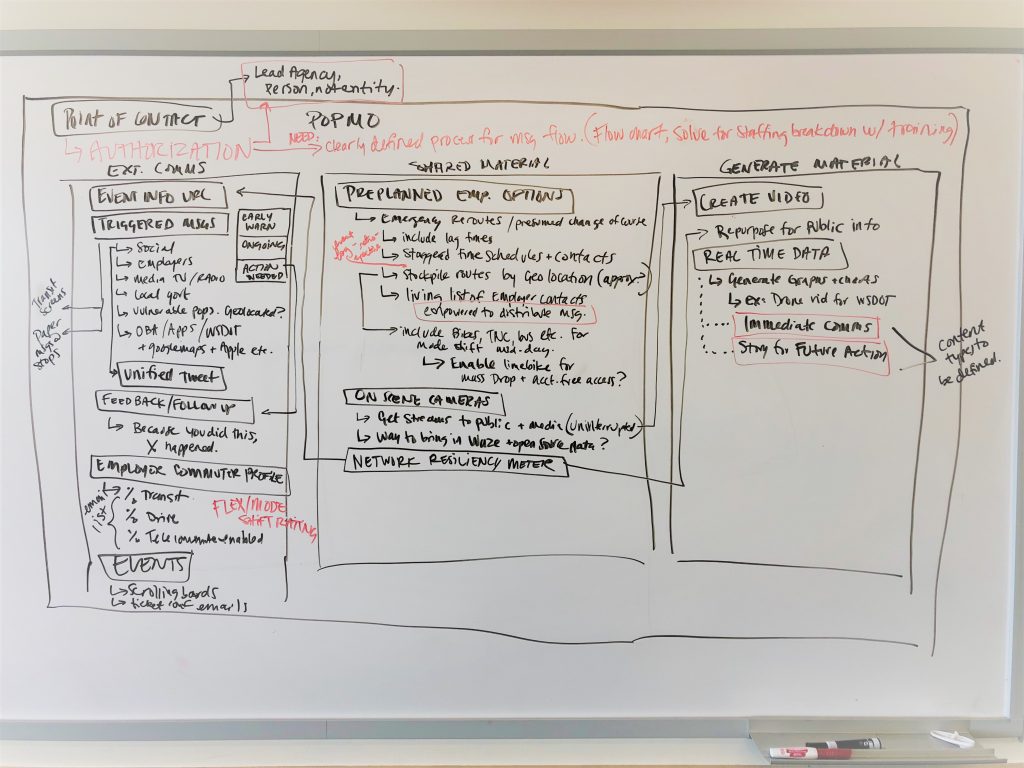 Lead Agency,
person, not entity.
POINT OF CONTACT
POPMO
↳ AUTHORIZATION
NEED:
clearly defined process for msg flow. (Flow chart, Solve for Staffing breakdown w/ training)
EXT. COMMS
EVENT INFO URL
TRIGGERED MSGS
EARLY
WARN
ONGOING
ACTION
NEEDED
↳ Social
↳ Employers
↳ media TV/RADIO
↳ Local govt
↳ Vulnerable pops. Geolocated?
↳ OBA/Apps/WSDOT
+ googlemaps + Apple etc.
Unified Tweet
Transit
Screens
Paper
msg @
stops
FEEDBACK/FOLLOW UP
↳ Because you did this,
X happened.
EMPLOYER COMMUTER PROFILE
↳ % Transit
% Drive
% Telecommute enabled
email
list
FLEX/MODE
SHIFT RATING
EVENTS
↳ Scrolling boards
↳ ticket conf emails
SHARED MATERIAL
PREPLANNED EMP. OPTIONS
↳ Emergency Reroutes/presumed change of course
↳ include lag times
↳ Staggered Time Schedules + Contacts
↳ Stockpile routes by Geo location (approx.)
↳ living list of Employer Contacts
empowered to distribute msg.
↳ include Bikes, TNC, bus etc. for
Mode shift mid-day.
↳ Enable limebike for
mass Drop + acct. free access?
ON SCENE CAMERAS
↳ Get Streams to public + media (Uninterrupted)
↳ Way to bring in Waze + open source data?
NETWORK RESILIENCY METER
GENERATE MATERIAL
CREATE VIDEO
Repurpose for Public info
REAL TIME DATA
↳ Generate Graphs + charts
↳ ex: Drone vid for WSDOT
Immediate Comms
Story for Future Action
Content
types to
be defined.